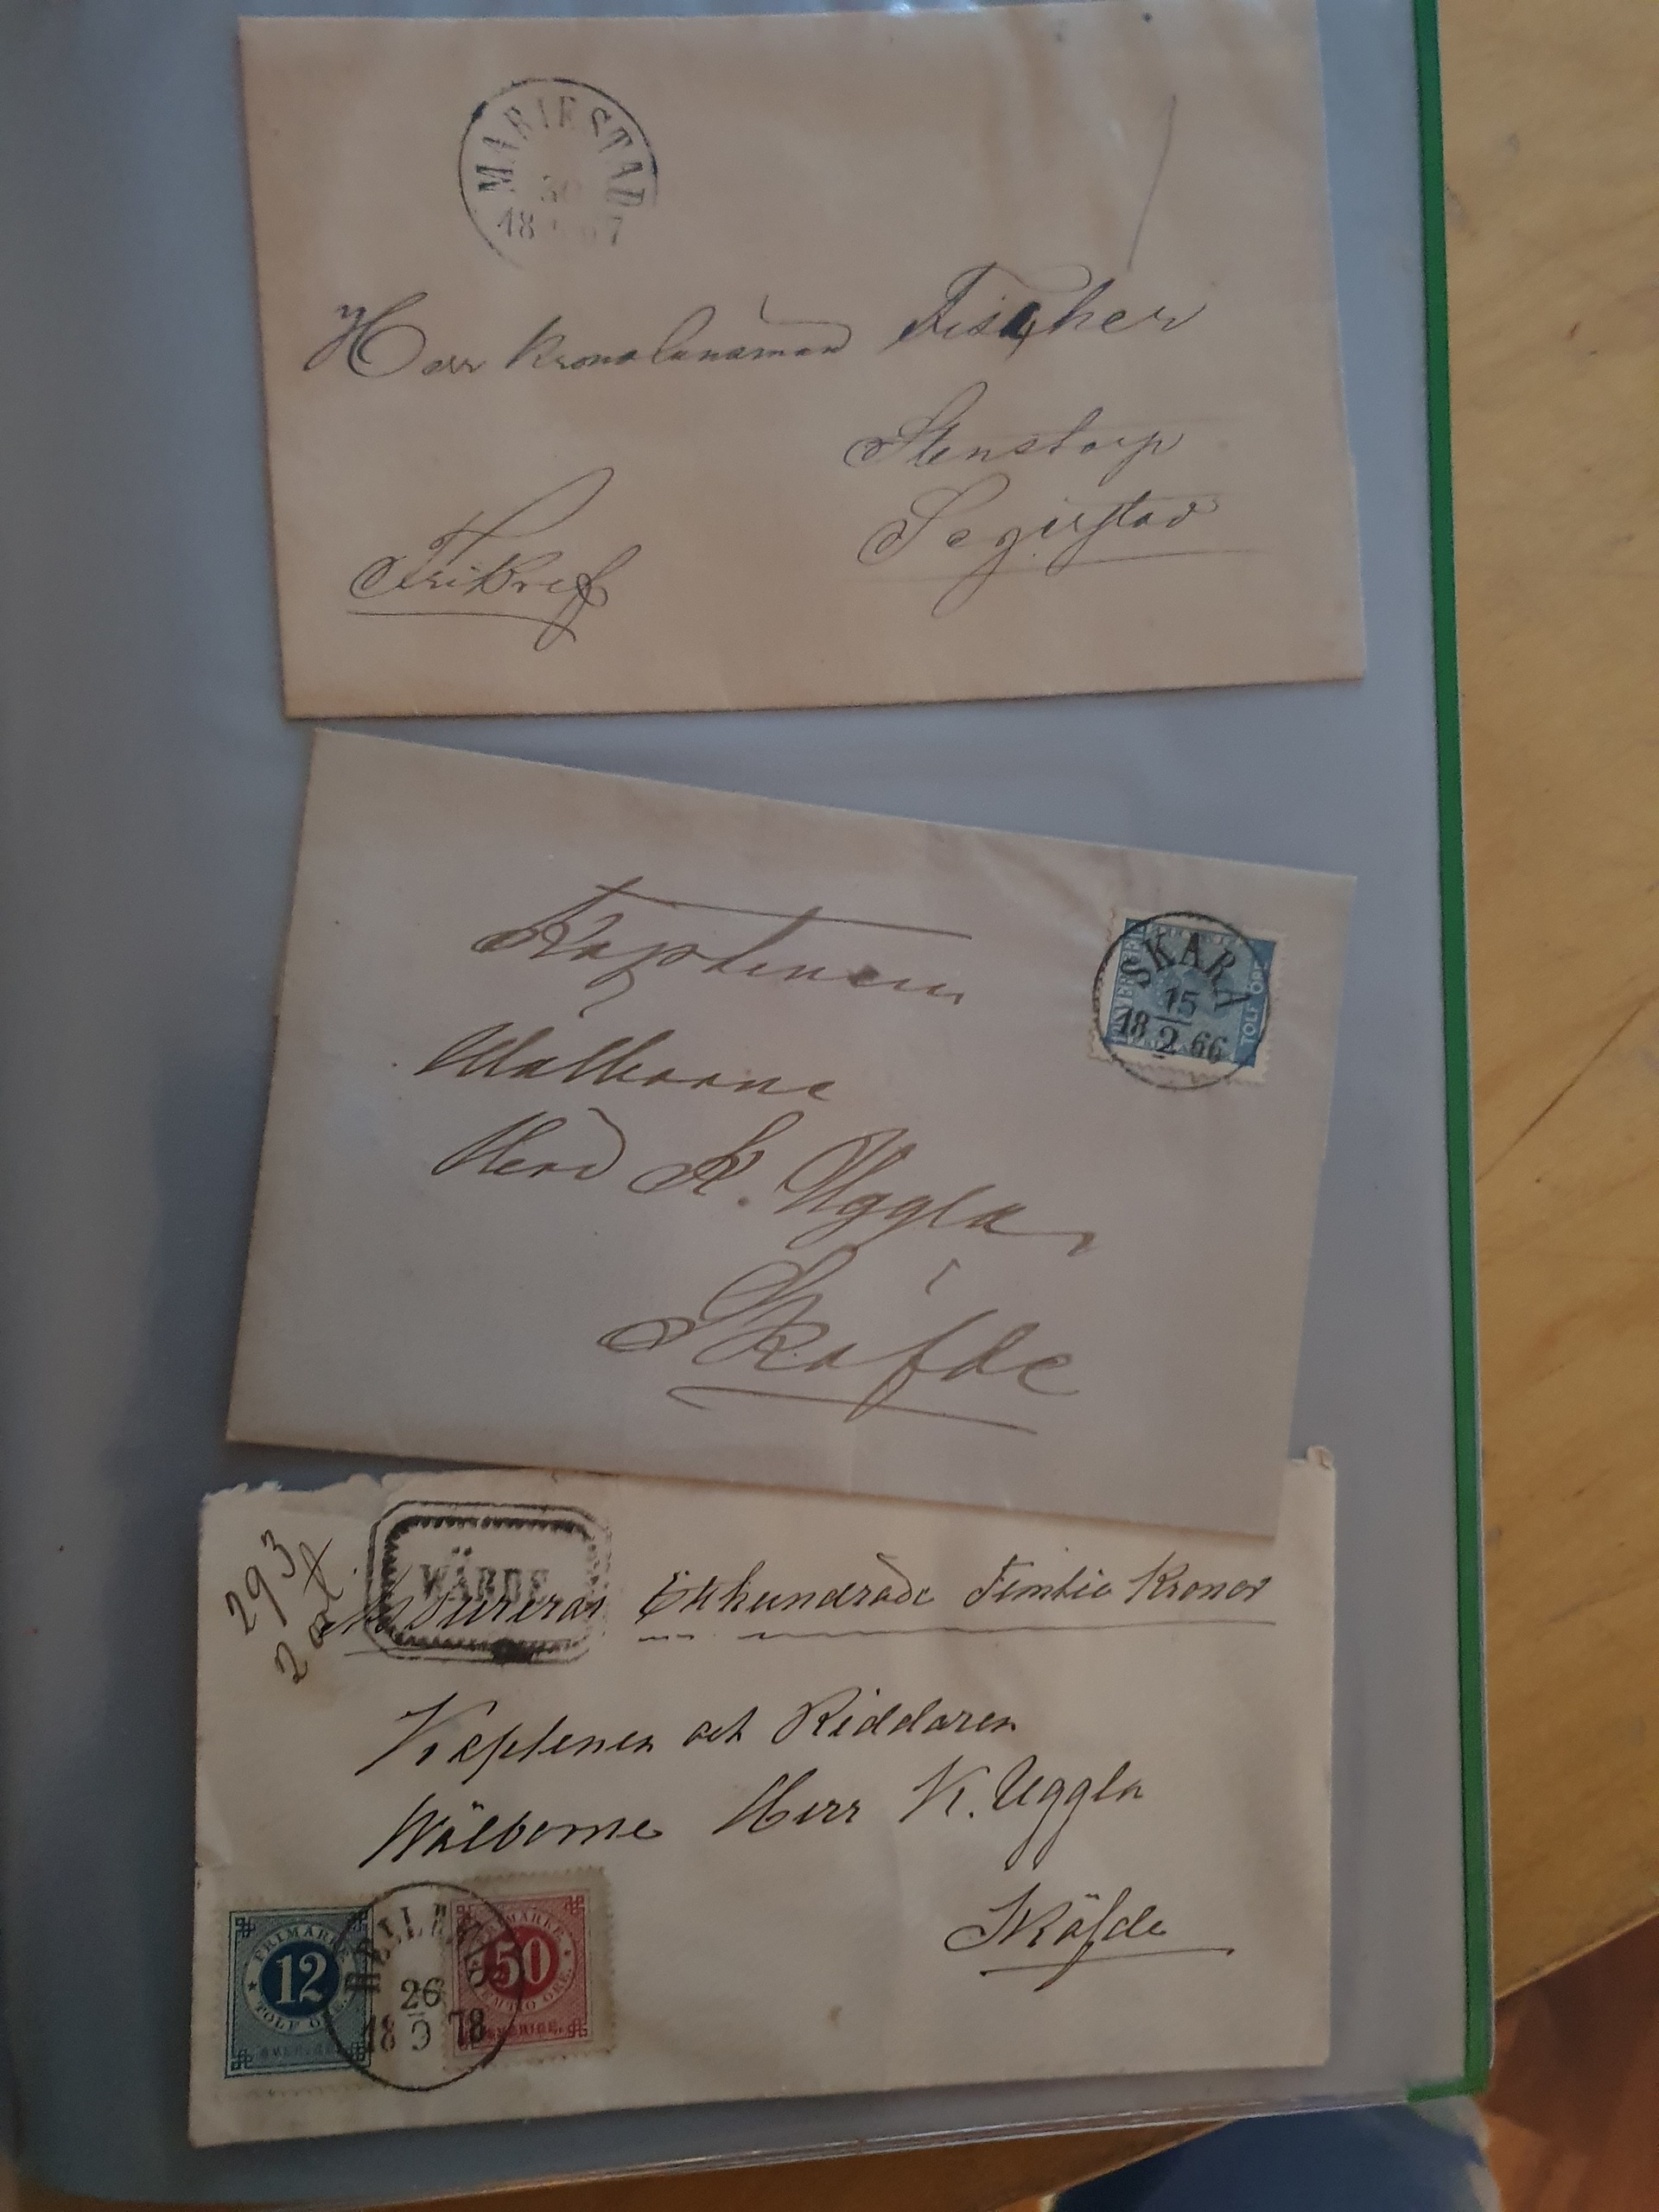 MARIESTAD
30
18 67
Herr Kronolänsman Fischer
Stenstorp
Segerstad
Fribref
Kaptenen
Wälborne
Herr K. Uggla
Sköfde
SKARA
15
18 2 66
TOLF ÖRE
293
2 ort
WÄRDE
Assureras Etthundrade Femtio Kronor
Kaptenen och Riddaren
Wälborne Herr K. Uggla
Sköfde
FRIMÄRKE
12
TOLF ÖRE
SVERIGE
26
18 9 78
FRIMÄRKE
50
FEMTIO ÖRE
SVERIGE